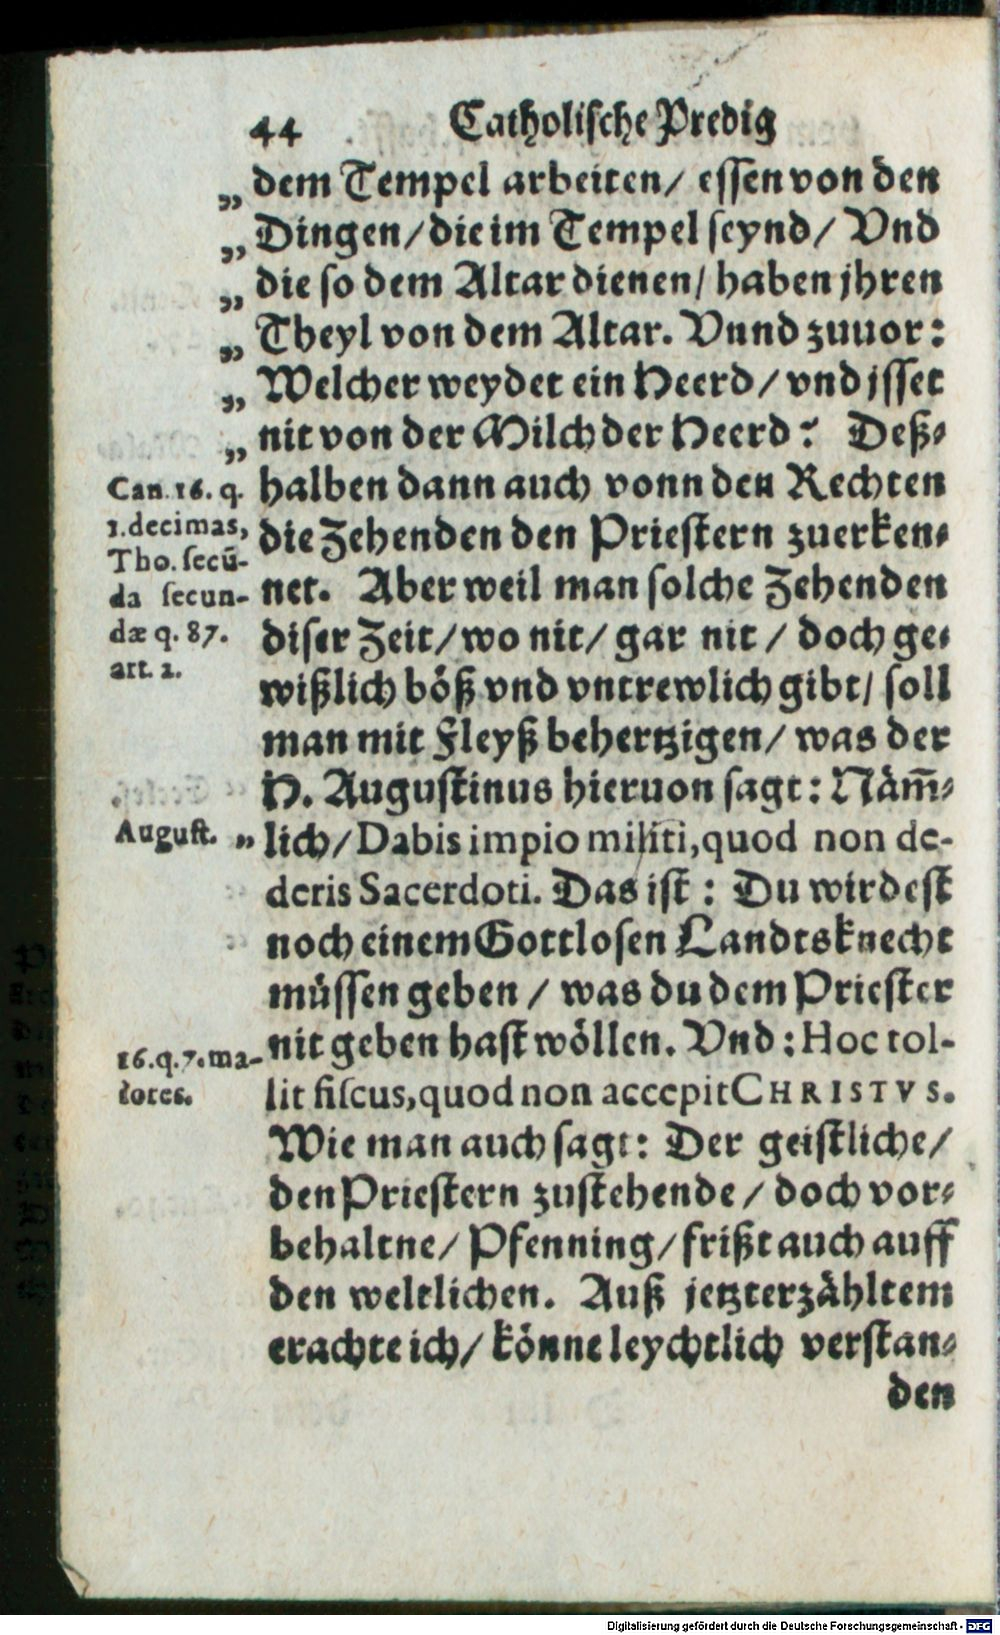 44 Catholische Predig
„ dem Tempel arbeiten/ essen von den
„ Dingen/ die im Tempel seynd/ Vnd
„ die so dem Altar dienen/ haben jhren
„ Theyl von dem Altar. Vnnd zuuor:
„ Welcher weydet ein Heerd/ vnd jsset
„ nit von der Milch der Heerd? Deß-
halben dann auch vonn den Rechten
die Zehenden den Priestern zuerken-
net. Aber weil man solche Zehenden
diser Zeit/ wo nit/ gar nit/ doch ge-
wißlich böß vnd vntrewlich gibt/ soll
man mit Fleyß behertzigen/ was der
H. Augustinus hieruon sagt: Näm̃-
„ lich/ Dabis impio militi, quod non de-
deris Sacerdoti. Das ist: Du wirdest
noch einem Gottlosen Landtsknecht
müssen geben/ was du dem Priester
nit geben hast wöllen. Vnd: Hoc tol-
lit fiscus, quod non accepit CHRISTVS.
Wie man auch sagt: Der geistliche/
den Priestern zustehende/ doch vor-
behaltne/ Pfenning/ frißt auch auff
den weltlichen. Auß jetzterzähltem
erachte ich/ könne leychtlich verstan-
den
Can. 16. q.
1. decimas,
Tho. secũ-
da secun-
dæ q. 87.
art. 2.
August.
16. q. 7. ma-
iores.
Digitalisierung gefördert durch die Deutsche Forschungsgemeinschaft - DFG